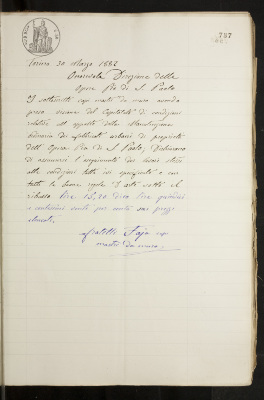 787
Torino 30 Marzo 1887
Onorevole Direzione della
Opera Pia di S. Paolo
I sottoscritti capi mastri da muro avendo
preso visione del Capitolato di condizioni
relative all'appalto della Manutenzione
ordinaria dei fabbricati urbani di proprietà
dell'Opera Pia di S. Paolo, Dichiarano
di assumersi l'eseguimento dei lavori stessi
alle condizioni tutte ivi specificate e con
tutte le buone regole d'arte sotto il
ribasso lire 15,20 dico lire quindici
e centesimi venti per cento sui prezzi
elencati.
Fratelli Faja capi
mastri da muro